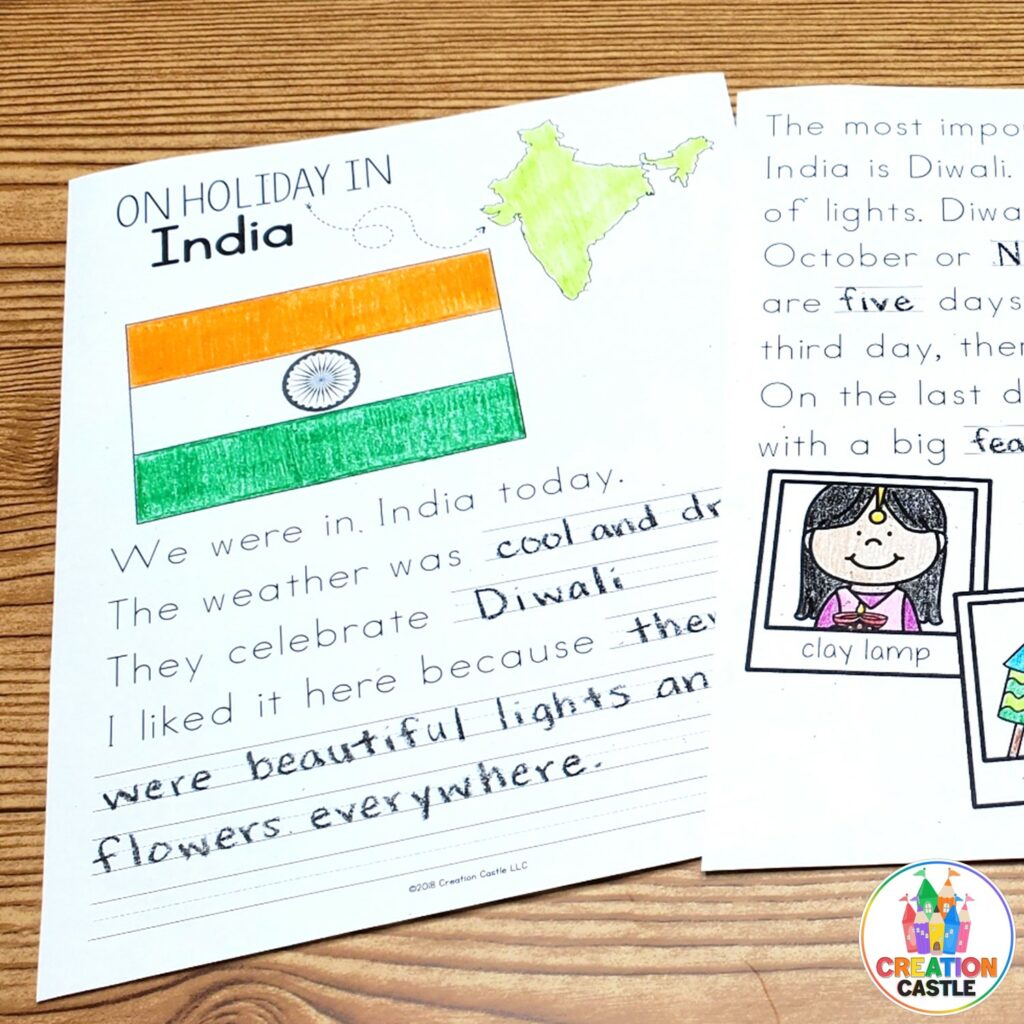 ON HOLIDAY IN
India
We were in India today.
The weather was cool and dr
They celebrate Diwali
I liked it here because they
were beautiful lights an
flowers everywhere.
©2018 Creation Castle LLC
The most impo
India is Diwali.
of lights. Diwa
October or N
are five days
third day, ther
On the last d
with a big fea
clay lamp
CREATION
CASTLE